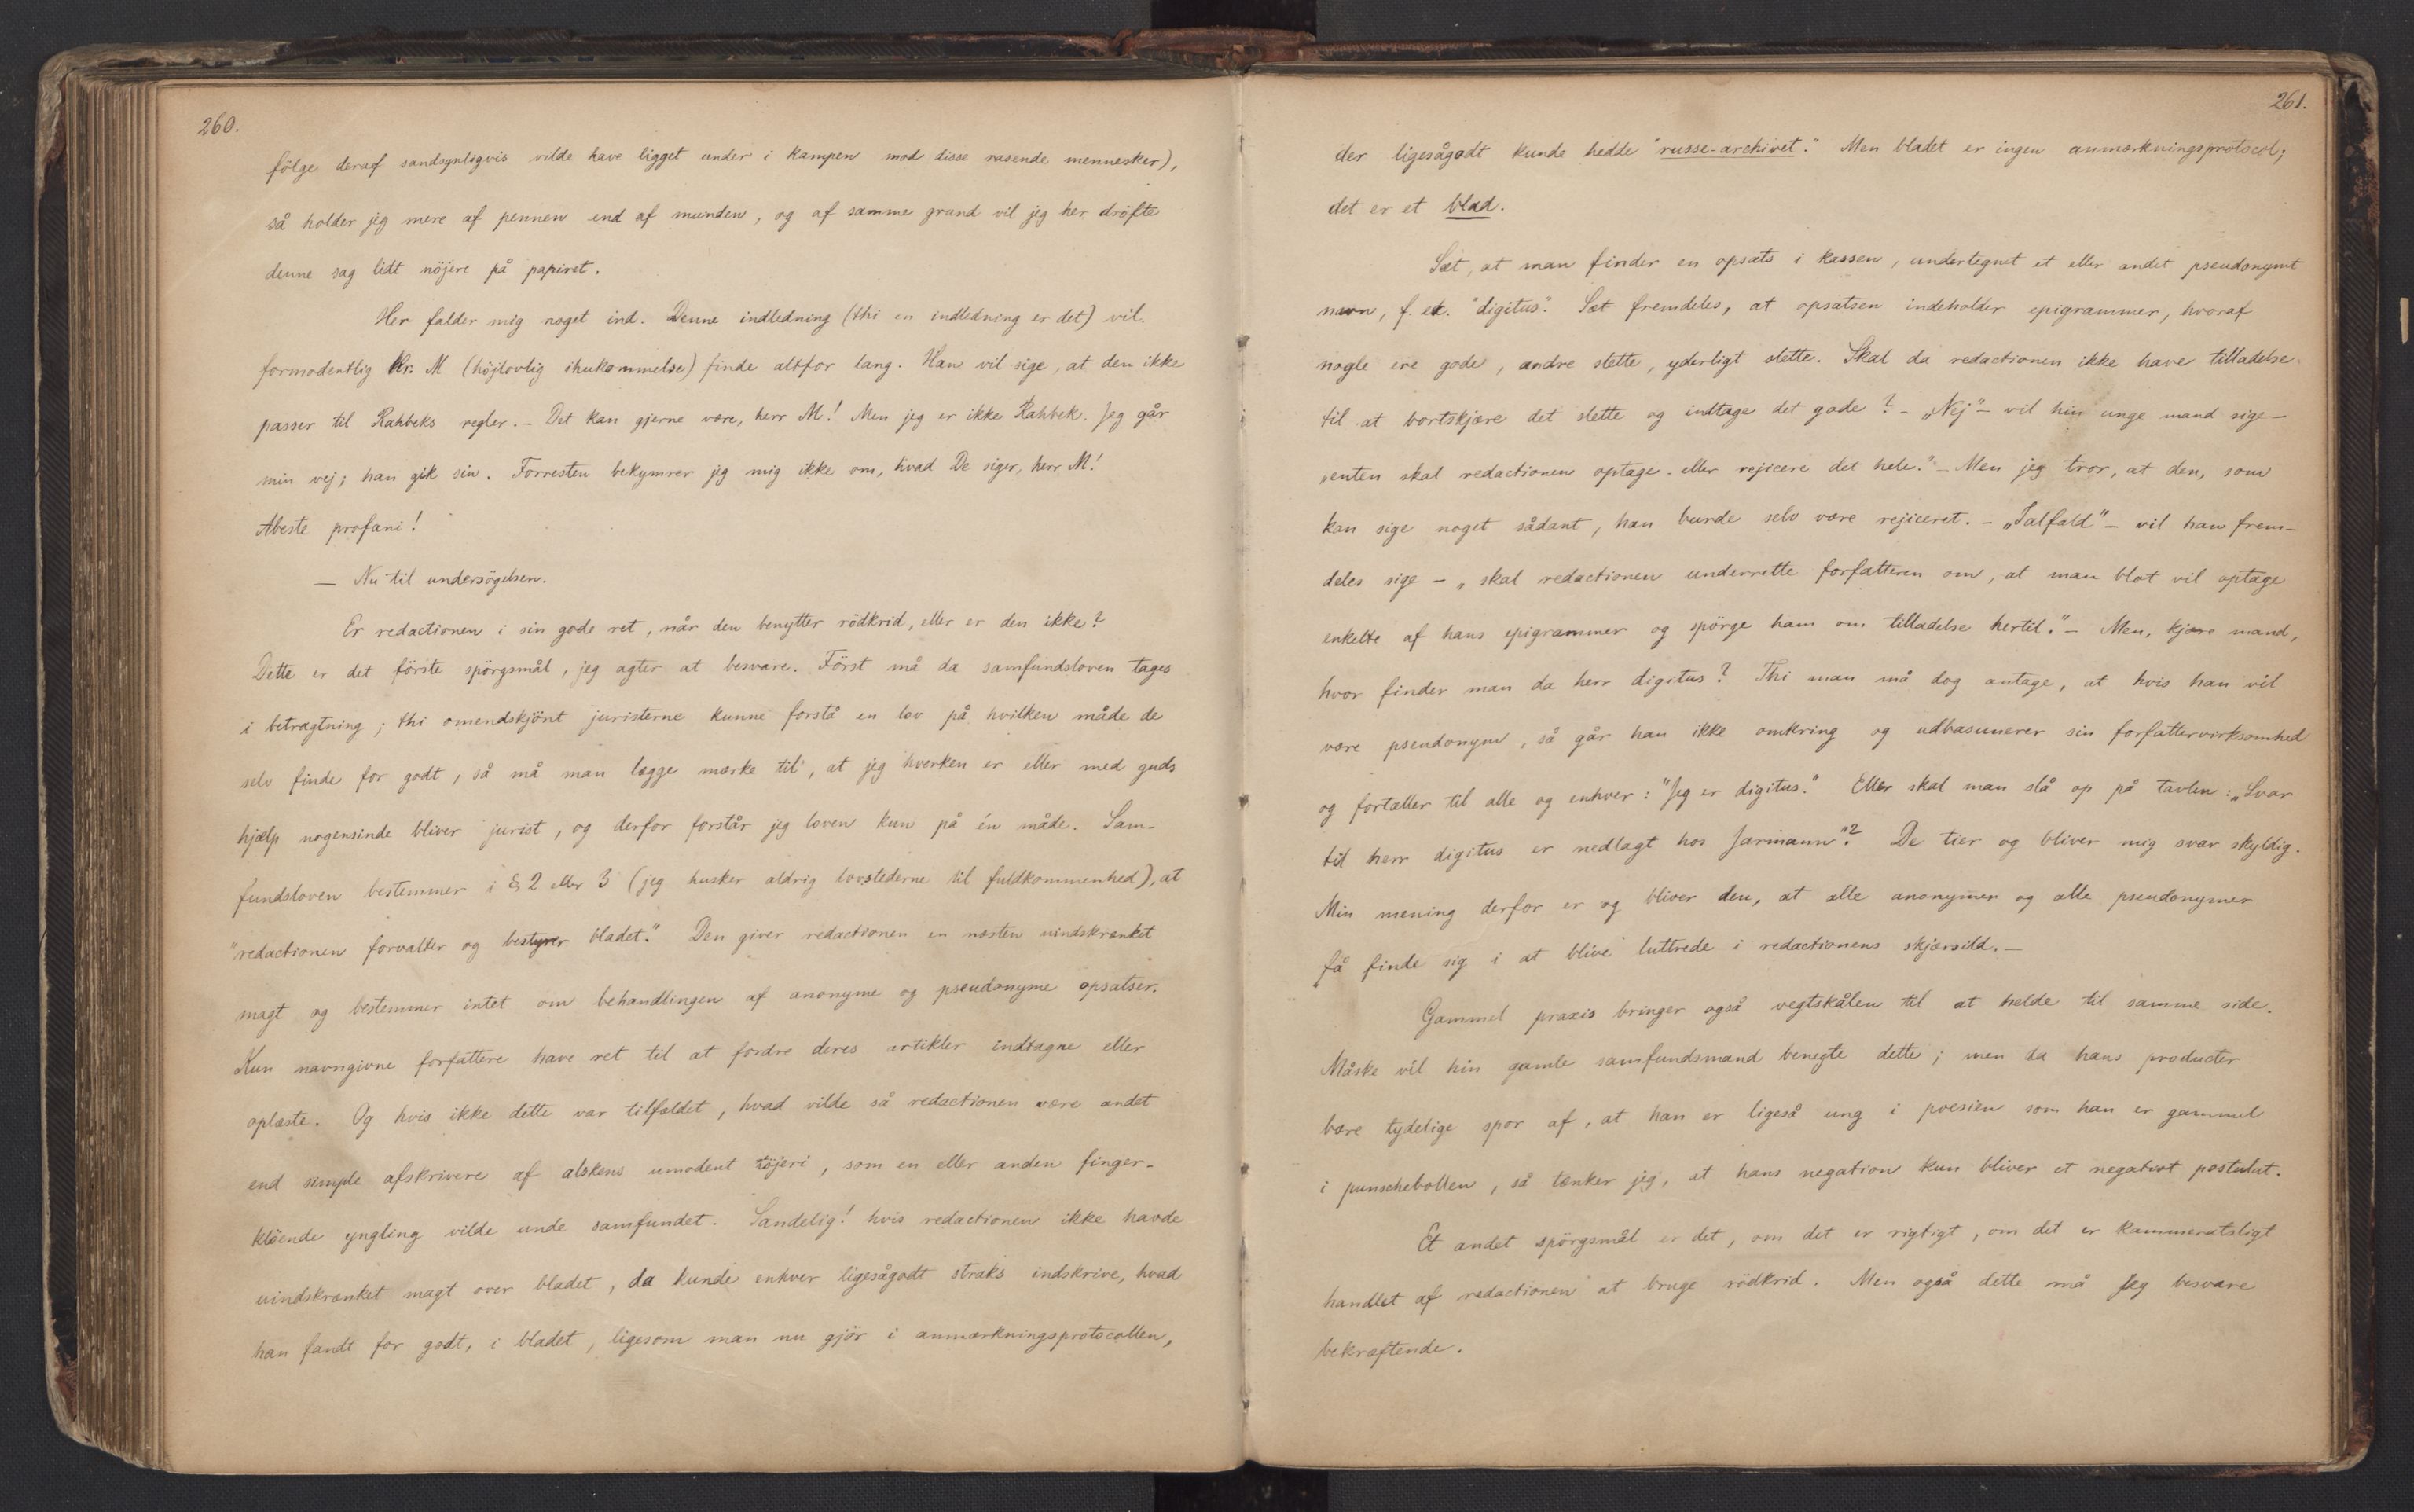 260.
følge deraf sandsynligvis vilde have ligget under i kampen mod disse rasende mennesker),
så holder jeg mere af pennen end af munden, og af samme grund vil jeg her dröfte
denne sag lidt nöjere på papiret.
Her falder mig noget ind. Denne indledning (thi en indledning er det) vil
formodentlig hr. M (höjlovlig ihukommelse) finde altfor lang. Han vil sige, at den ikke
passer til Rahbeks regler. – Det kan gjerne være, herr M! Men jeg er ikke Rahbek. Jeg går
min vej; han gik sin. Forresten bekymrer jeg mig ikke om, hvad De siger, herr M!
Abeste profani!
— Nu til undersögelsen.
Er redactionen i sin gode ret, når den benytter rödkrid, eller er den ikke?
Dette er det förste spörgsmål, jeg agter at besvare. Först må da samfundsloven tages
i betragtning; thi omendskjönt juristerne kunne forstå en lov på hvilken måde de
selv finde for godt, så må man lægge mærke til, at jeg hverken er eller med guds
hjælp nogensinde bliver jurist, og derfor forstår jeg loven kun på én måde. Sam-
fundsloven bestemmer i § 2 eller 3 (jeg husker aldrig lovstederne til fuldkommenhed), at
"redactionen forvalter og bestyrer bladet." Den giver redactionen en næsten uindskrænket
magt og bestemmer intet om behandlingen af anonyme og pseudonyme opsatser.
Kun navngivne forfattere have ret til at fordre deres artikler indtagne eller
oplæste. Og hvis ikke dette var tilfældet, hvad vilde så redactionen være andet
end simple afskrivere af alskens umodent töjeri, som en eller anden finger-
klöende yngling vilde unde samfundet. Sandelig! hvis redactionen ikke havde
uindskrænket magt over bladet, da kunde enhver ligesågodt straks indskrive, hvad
han fandt for godt, i bladet, ligesom man nu gjör i anmærkningsprotocollen,
261.
der ligesågodt kunde hedde "russe-archivet." Men bladet er ingen anmærkningsprotocol;
det er et blad.
Sæt, at man finder en opsats i kassen, undertegnet et eller andet pseudonymt
navn, f. ex. "digitus". Sæt fremdeles, at opsatsen indeholder epigrammer, hvoraf
nogle ere gode, andre slette, yderligt slette. Skal da redactionen ikke have tilladelse
til at bortskjære det slette og indtage det gode? – „Nej" – vil hin unge mand sige –
„enten skal redactionen optage eller rejicere det hele." – Men jeg tror, at den, som
kan sige noget sådant, han burde selv være rejiceret. – „Ialfald" – vil han frem-
deles sige – „skal redactionen underrette forfatteren om, at man blot vil optage
enkelte af hans epigrammer og spörge ham om tilladelse hertil." – Men, kjære mand,
hvor finder man da herr digitus? Thi man må dog antage, at hvis han vil
være pseudonym, så går han ikke omkring og udbasunerer sin forfattervirksomhed
og fortæller til alle og enhver: "Jeg er digitus." Eller skal man slå op på tavlen: „Svar
til herr digitus er nedlagt hos Jarmann"? De tier og bliver mig svar skyldig.
Min mening derfor er og bliver den, at alle anonymer og alle pseudonymer
få finde sig i at blive luttrede i redactionens skjærsild. –
Gammel praxis bringer også vegtskålen til at helde til samme side.
Måske vil hin gamle samfundsmand benegte dette; men da hans producter
bære tydelige spor af, at han er ligeså ung i poesien som han er gammel
i punschebollen, så tænker jeg, at hans negation kun bliver et negativt postulat.
Et andet spörgsmål er det, om det er rigtigt, om det er kammeratsligt
handlet af redactionen at bruge rödkrid. Men også dette må jeg besvare
bekræftende.